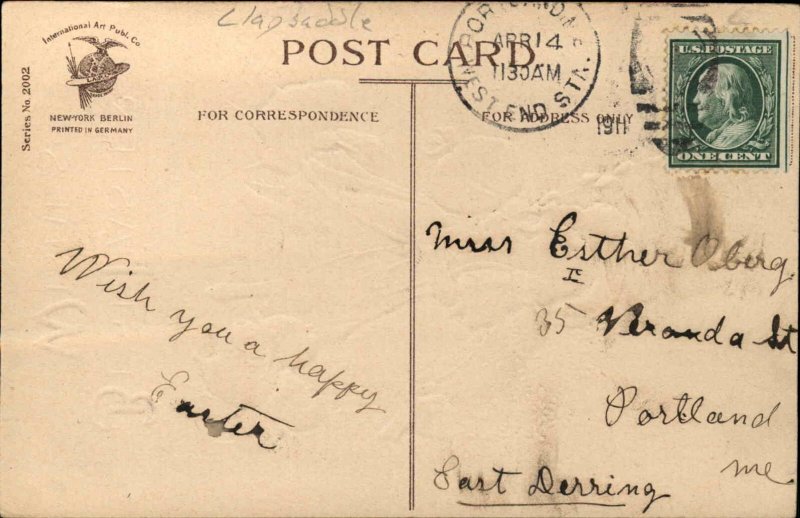 Clapsaddle
International Art Publ. Co
NEW-YORK BERLIN
PRINTED IN GERMANY
Series No. 2002
POST CARD
FOR CORRESPONDENCE
FOR ADDRESS ONLY
PORTLAND, ME.
APR 14
1130AM
WEST END STN.
1911
U.S. POSTAGE
ONE CENT
Wish you a happy
Easter
Miss Esther Oberg
I
35 Veranda St
Portland
Me
East Derring